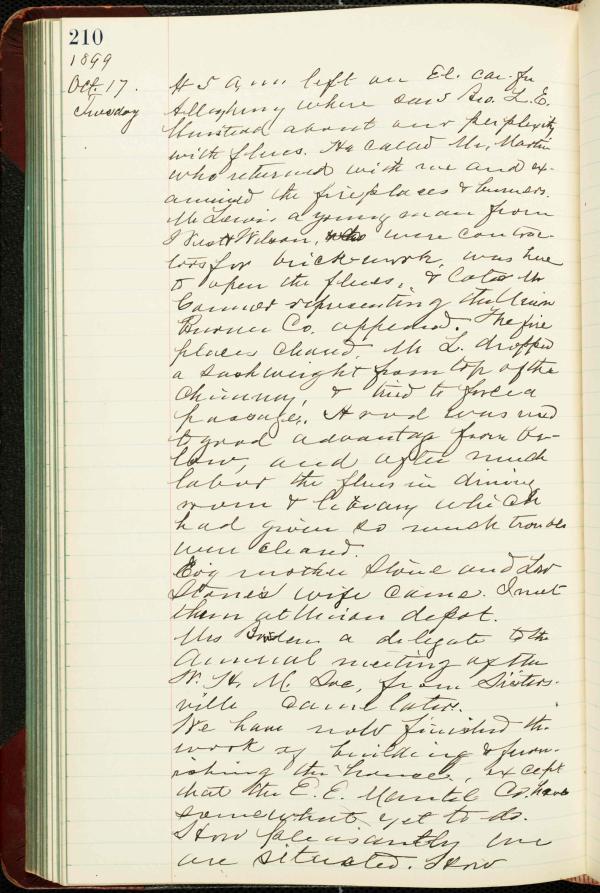 210
1899
Oct. 17.
Tuesday
At 5 a.m. left on El. car for
Allegheny where saw Bro. L. E.
about our perplexity
with flues. He called Mr. Martin
who returned with me and ex-
amined the fireplaces & burners.
Mr Lewis a young man from
Wilson, were contrac-
tors for brick-work, was here
to open the flues, & later Mr
Connor representing the Union
Burner Co. appeared. The fire
places cleared, Mr L. dropped
a sash weight from top of the
chimney, & tried to force a
passage. A rod was used
to good advantage from be-
low, and after much
labor the flues in dining
room & library which
had given so much trouble
were cleared.
mother Stone and
Stone's wife came. I met
them at Union depot.
Mrs a delegate to the
Annual meeting of the
W. H. M. Soc, from Sisters-
ville came later.
We have now finished the
work of building & furn-
ishing this house, except
that the E. E. Mantel Co. have
somewhat yet to do.
How pleasantly we
are situated. How